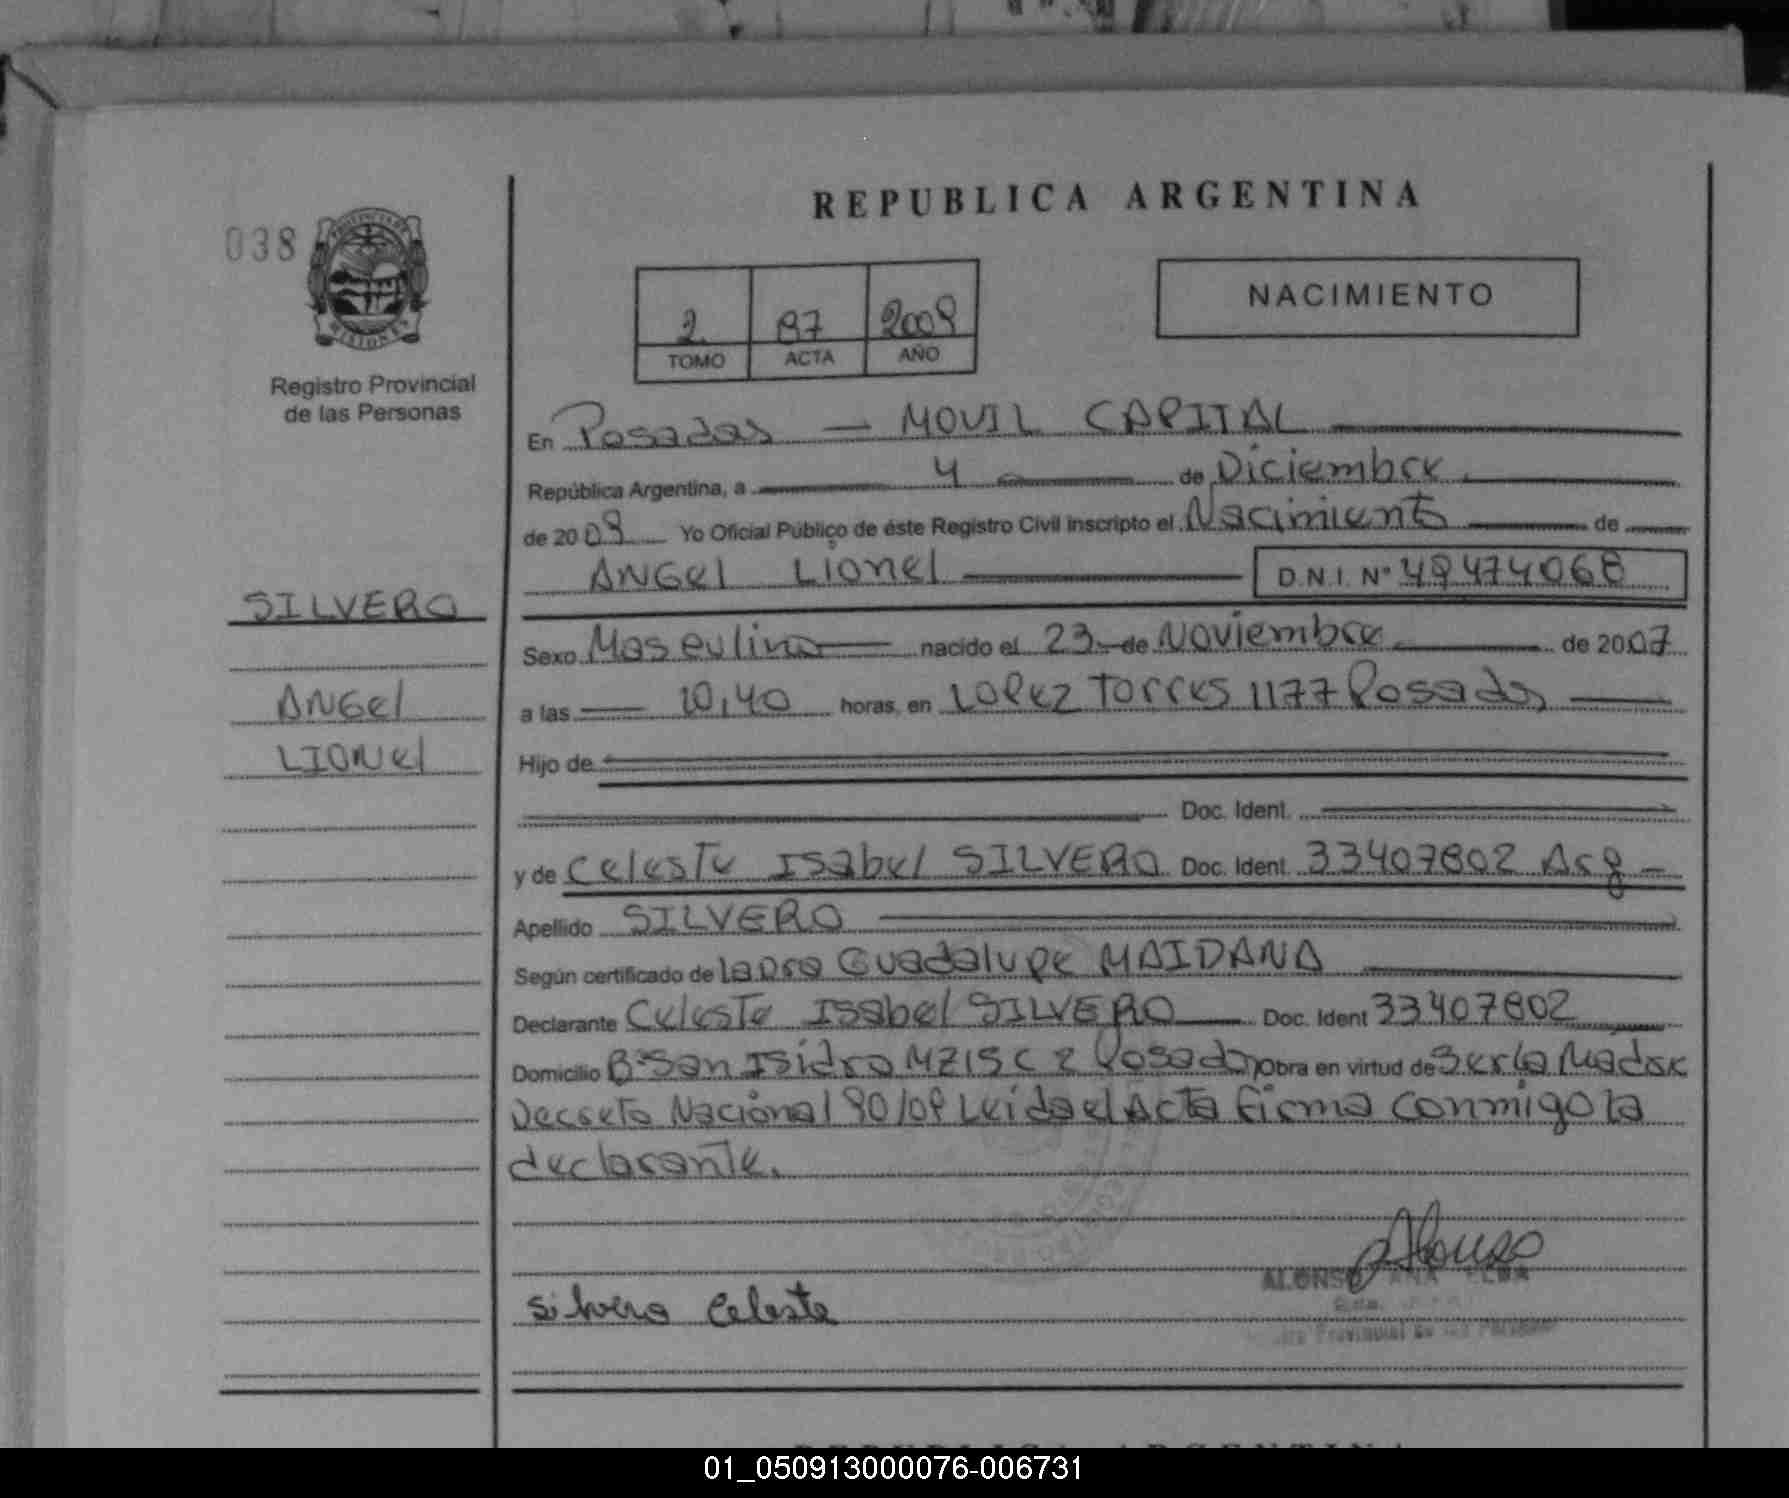 REPUBLICA ARGENTINA
038
PROVINCIA DE
MISIONES
Registro Provincial
de las Personas
NACIMIENTO
2 87 2009
TOMO ACTA AÑO
En Posadas — MOVIL CAPITAL
República Argentina, a 4 de Diciembre
de 2009 Yo Oficial Público de éste Registro Civil inscripto el Nacimiento de
ANGEL Lionel D.N.I. Nº 48474068
SILVERO
ANGEL
LIONEL
Sexo Masculino nacido el 23 de Noviembre de 2007
a las 10,40 horas, en LOPEZ TORRES 1177 Posadas
Hijo de
Doc. Ident.
y de Celeste Isabel SILVERO Doc. Ident. 33407802 Arg
Apellido SILVERO
Según certificado de Laura Guadalupe MAIDANA
Declarante Celeste Isabel SILVERO Doc. Ident 33407802
Domicilio Bº San Isidro MZ15 C2 Posadas Obra en virtud de Ser la Madre
Decreto Nacional 90/09 Leida el Acta firma conmigo la
declarante.
Alonso
ALONSO ANA ELBA
Silvero Celeste
Provincial de las Personas
01_050913000076-006731